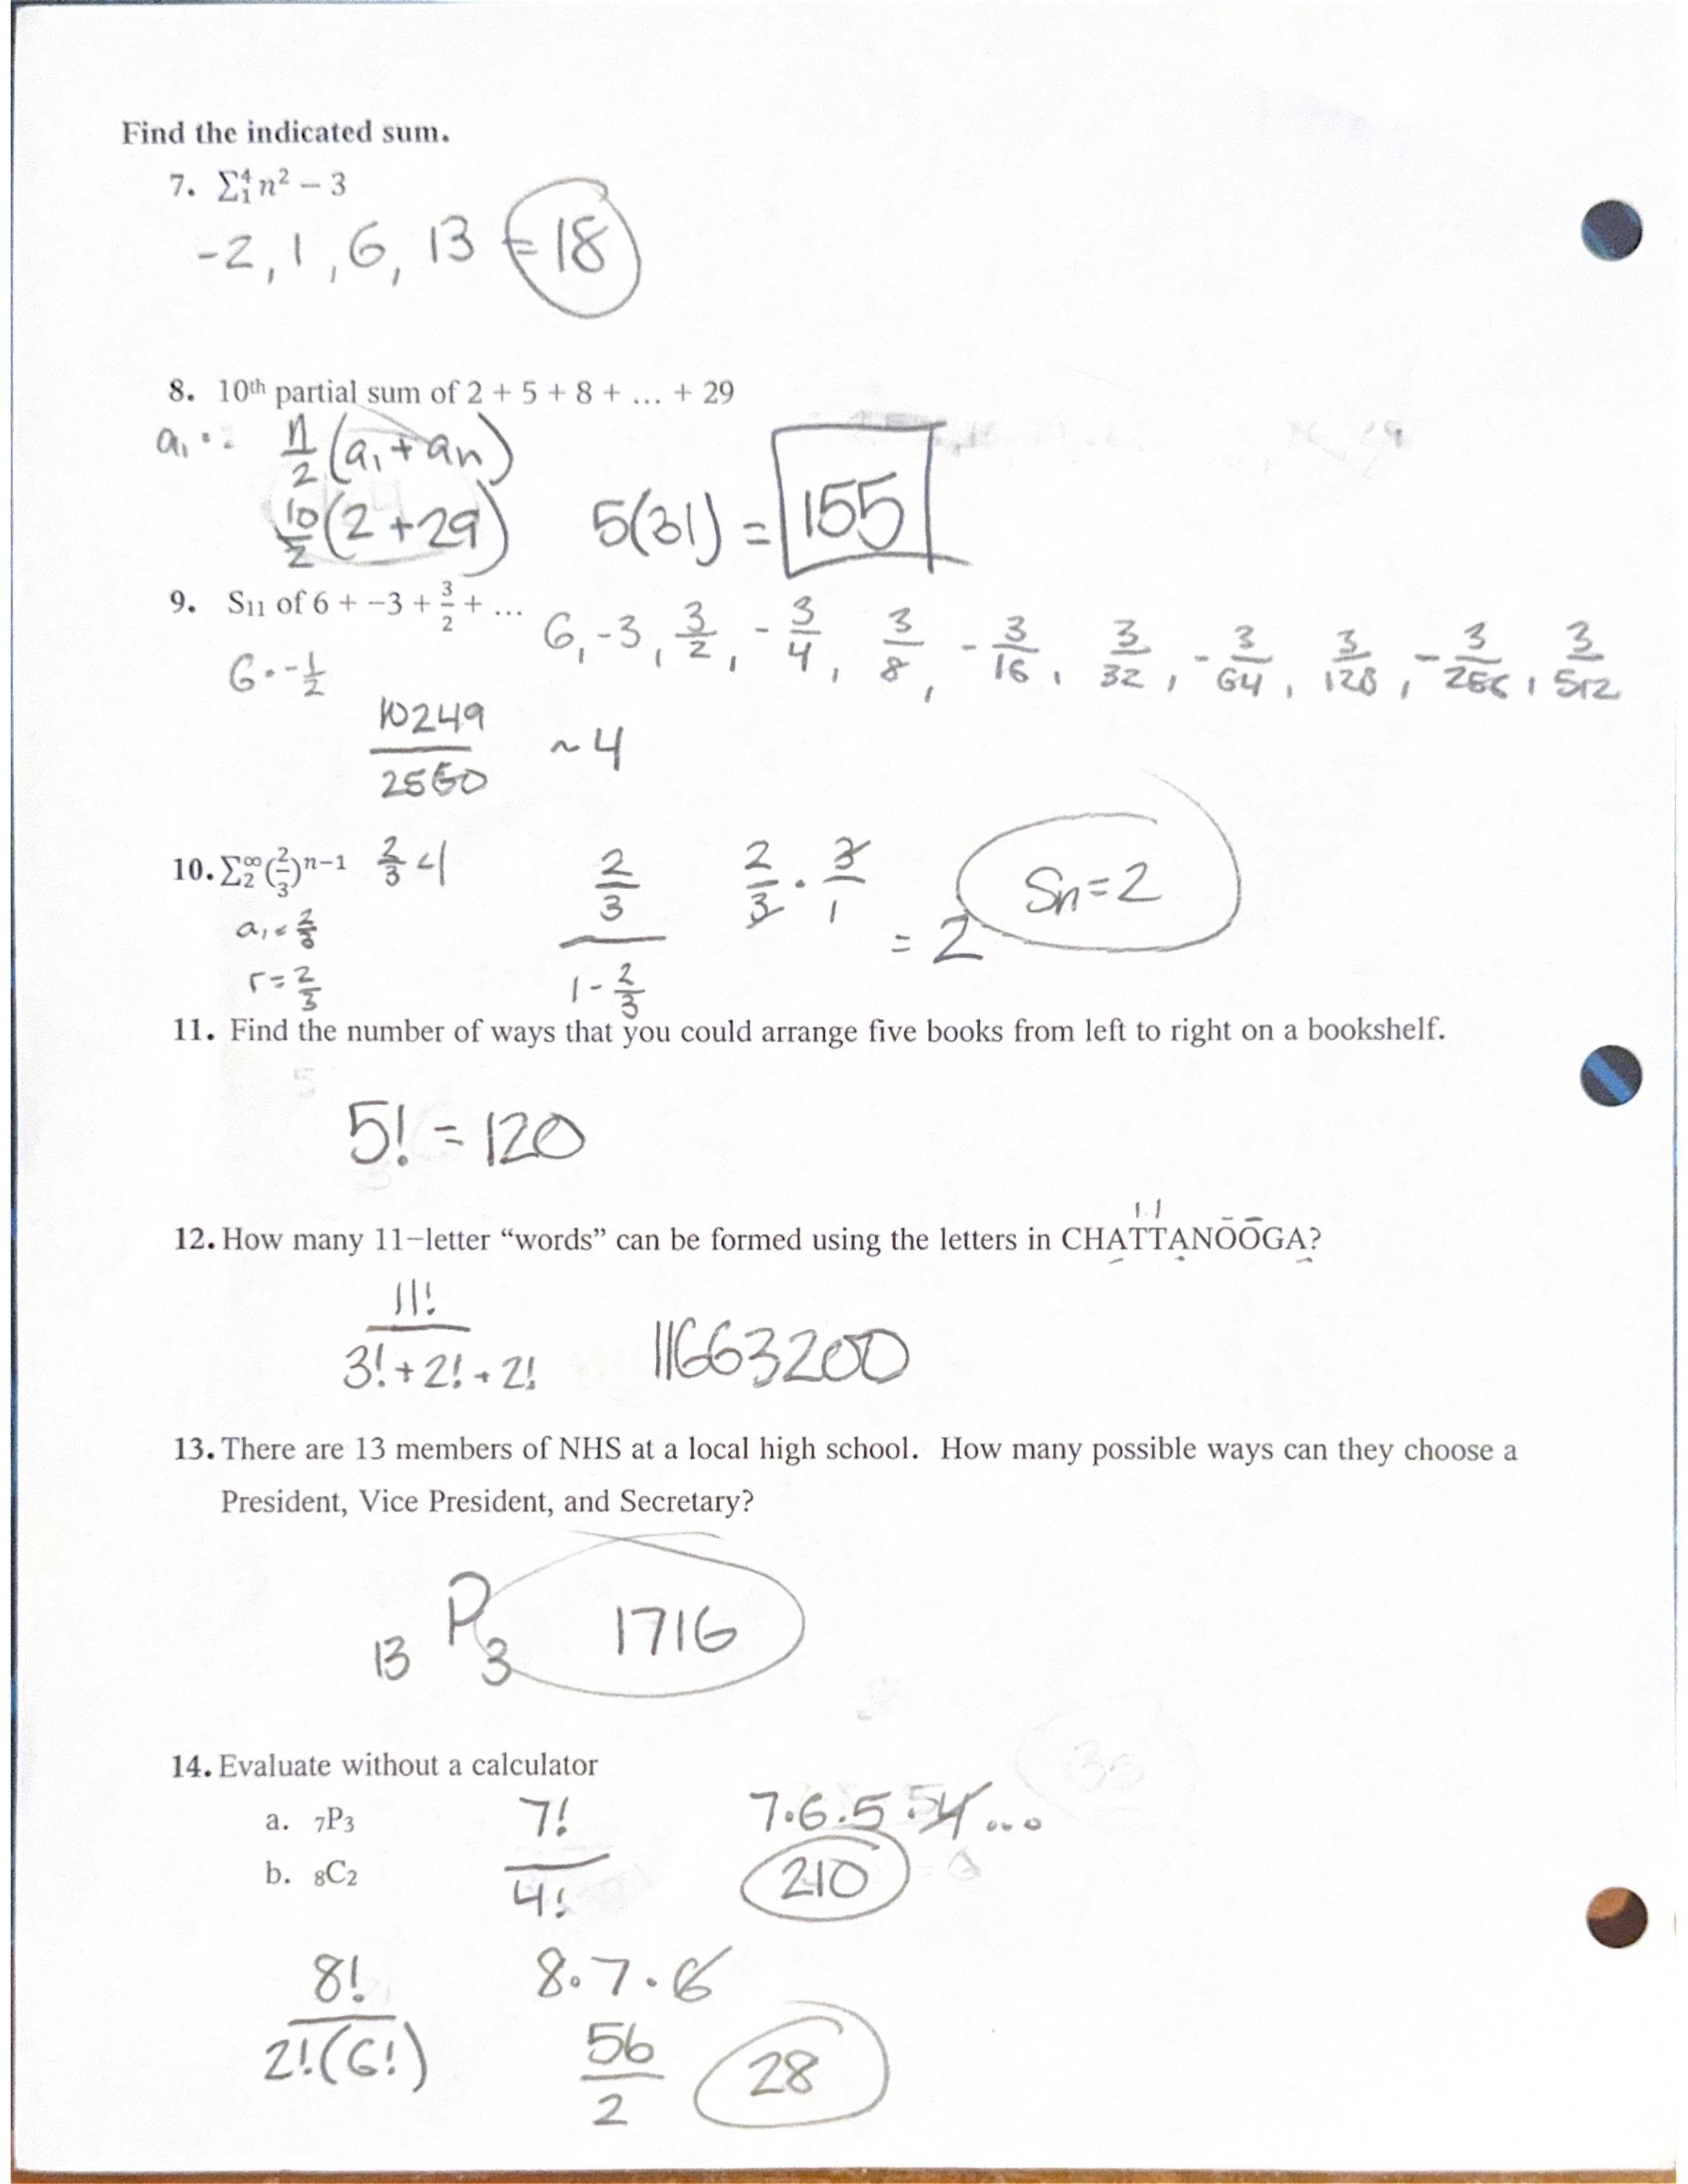 Find the indicated sum.
7. ∑₁⁴ n² − 3
-2, 1, 6, 13 = 18
8. 10th partial sum of 2 + 5 + 8 + … + 29
a₁ = n/2 (a₁ + an)
10/2 (2 + 29) 5(31) = 155
9. S₁₁ of 6 + −3 + 3/2 + …
6, -3, 3/2, -3/4, 3/8, -3/16, 3/32, -3/64, 3/128, -3/256, 3/512
6 · -1/2
10249/2560 ~4
10. ∑₂^∞ (2/3)^(n−1) 2/3 < 1
a₁ = 2/3
r = 2/3
2/3 / 1 - 2/3 2/3 · 3/1 = 2 Sn = 2
11. Find the number of ways that you could arrange five books from left to right on a bookshelf.
5! = 120
12. How many 11−letter “words” can be formed using the letters in CHATTANOOGA?
11! / 3! + 2! + 2! 11663200
13. There are 13 members of NHS at a local high school. How many possible ways can they choose a
President, Vice President, and Secretary?
₁₃P₃ 1716
14. Evaluate without a calculator
a. ₇P₃ 7!/4! 7·6·5·4...
210
b. ₈C₂
8! / 2!(6!) 8·7·6
56/2 28